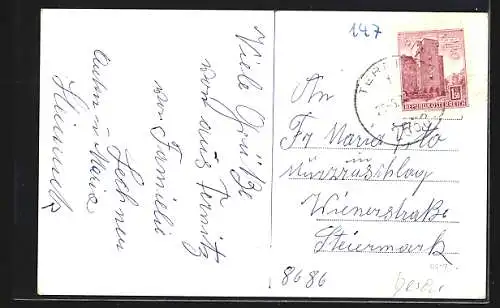 Viele Grüße
von aus Ternitz
von Familie
Lechner
Anton u Maria
Heinrich
147
TERNITZ
1.50
REPUBLIK ÖSTERREICH
An
Fr Maria
in
Mürzzuschlag
Wienerstraße
Steiermark
8686